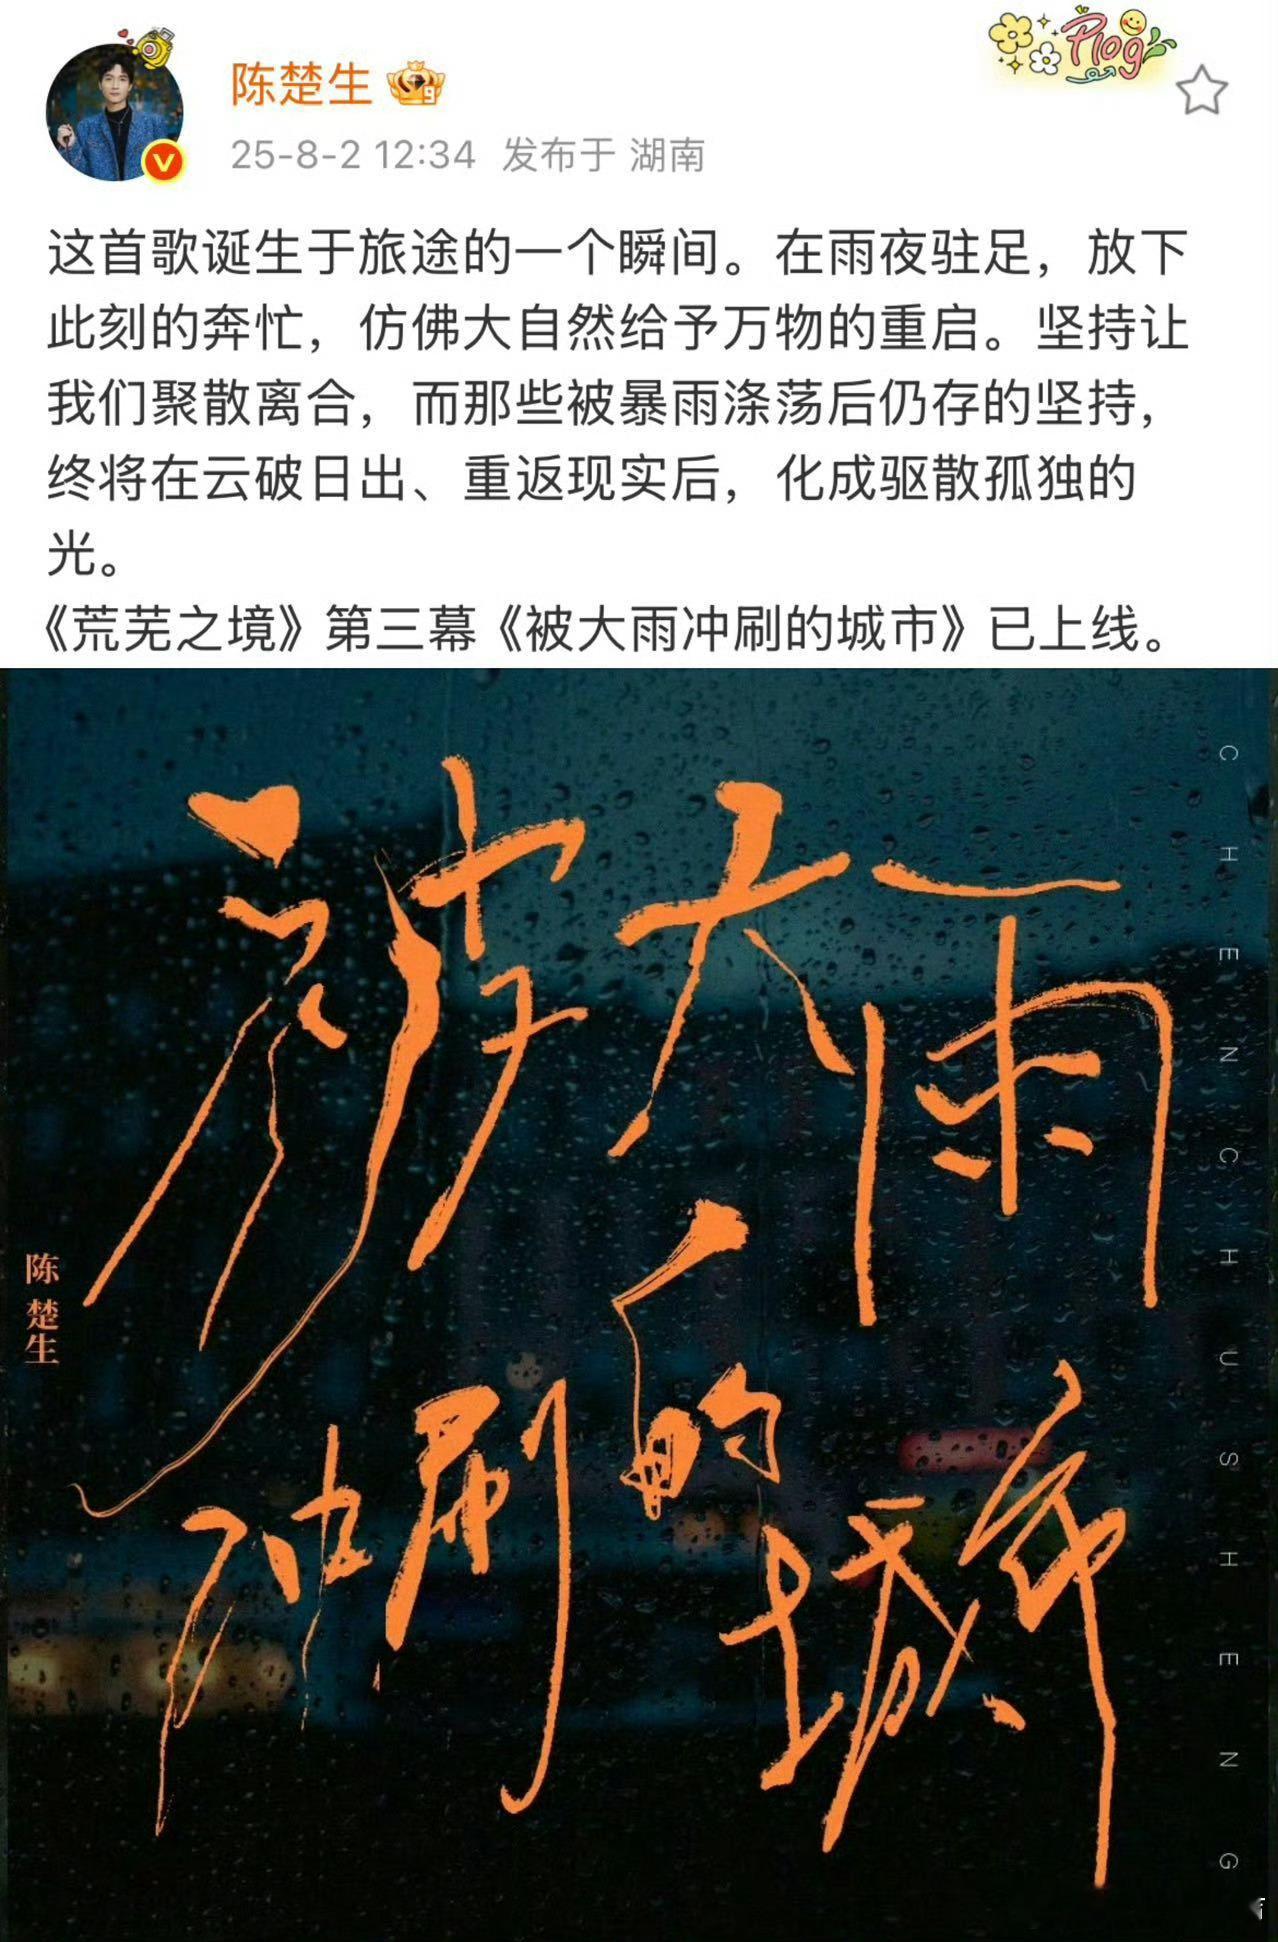 Plog
陈楚生
9
25-8-2 12:34 发布于 湖南
这首歌诞生于旅途的一个瞬间。在雨夜驻足，放下
此刻的奔忙，仿佛大自然给予万物的重启。坚持让
我们聚散离合，而那些被暴雨涤荡后仍存的坚持，
终将在云破日出、重返现实后，化成驱散孤独的
光。
《荒芜之境》第三幕《被大雨冲刷的城市》已上线。
被大雨
冲刷的城市
陈楚生
CHENCHUSHENG